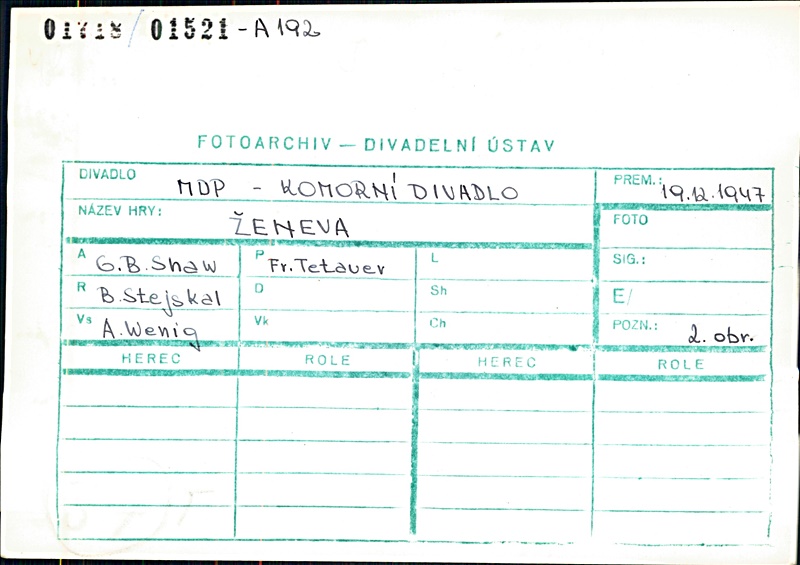 01718 / 01521 - A 192
FOTOARCHIV — DIVADELNÍ ÚSTAV
DIVADLO MDP - KOMORNÍ DIVADLO PREM.: 19.12.1947
NÁZEV HRY: ŽENEVA FOTO
A G.B.Shaw P Fr.Tetauer L SIG.:
R B.Stejskal D Sh E/
Vs A.Wenig Vk Ch POZN.: 2. obr.
HEREC ROLE HEREC ROLE